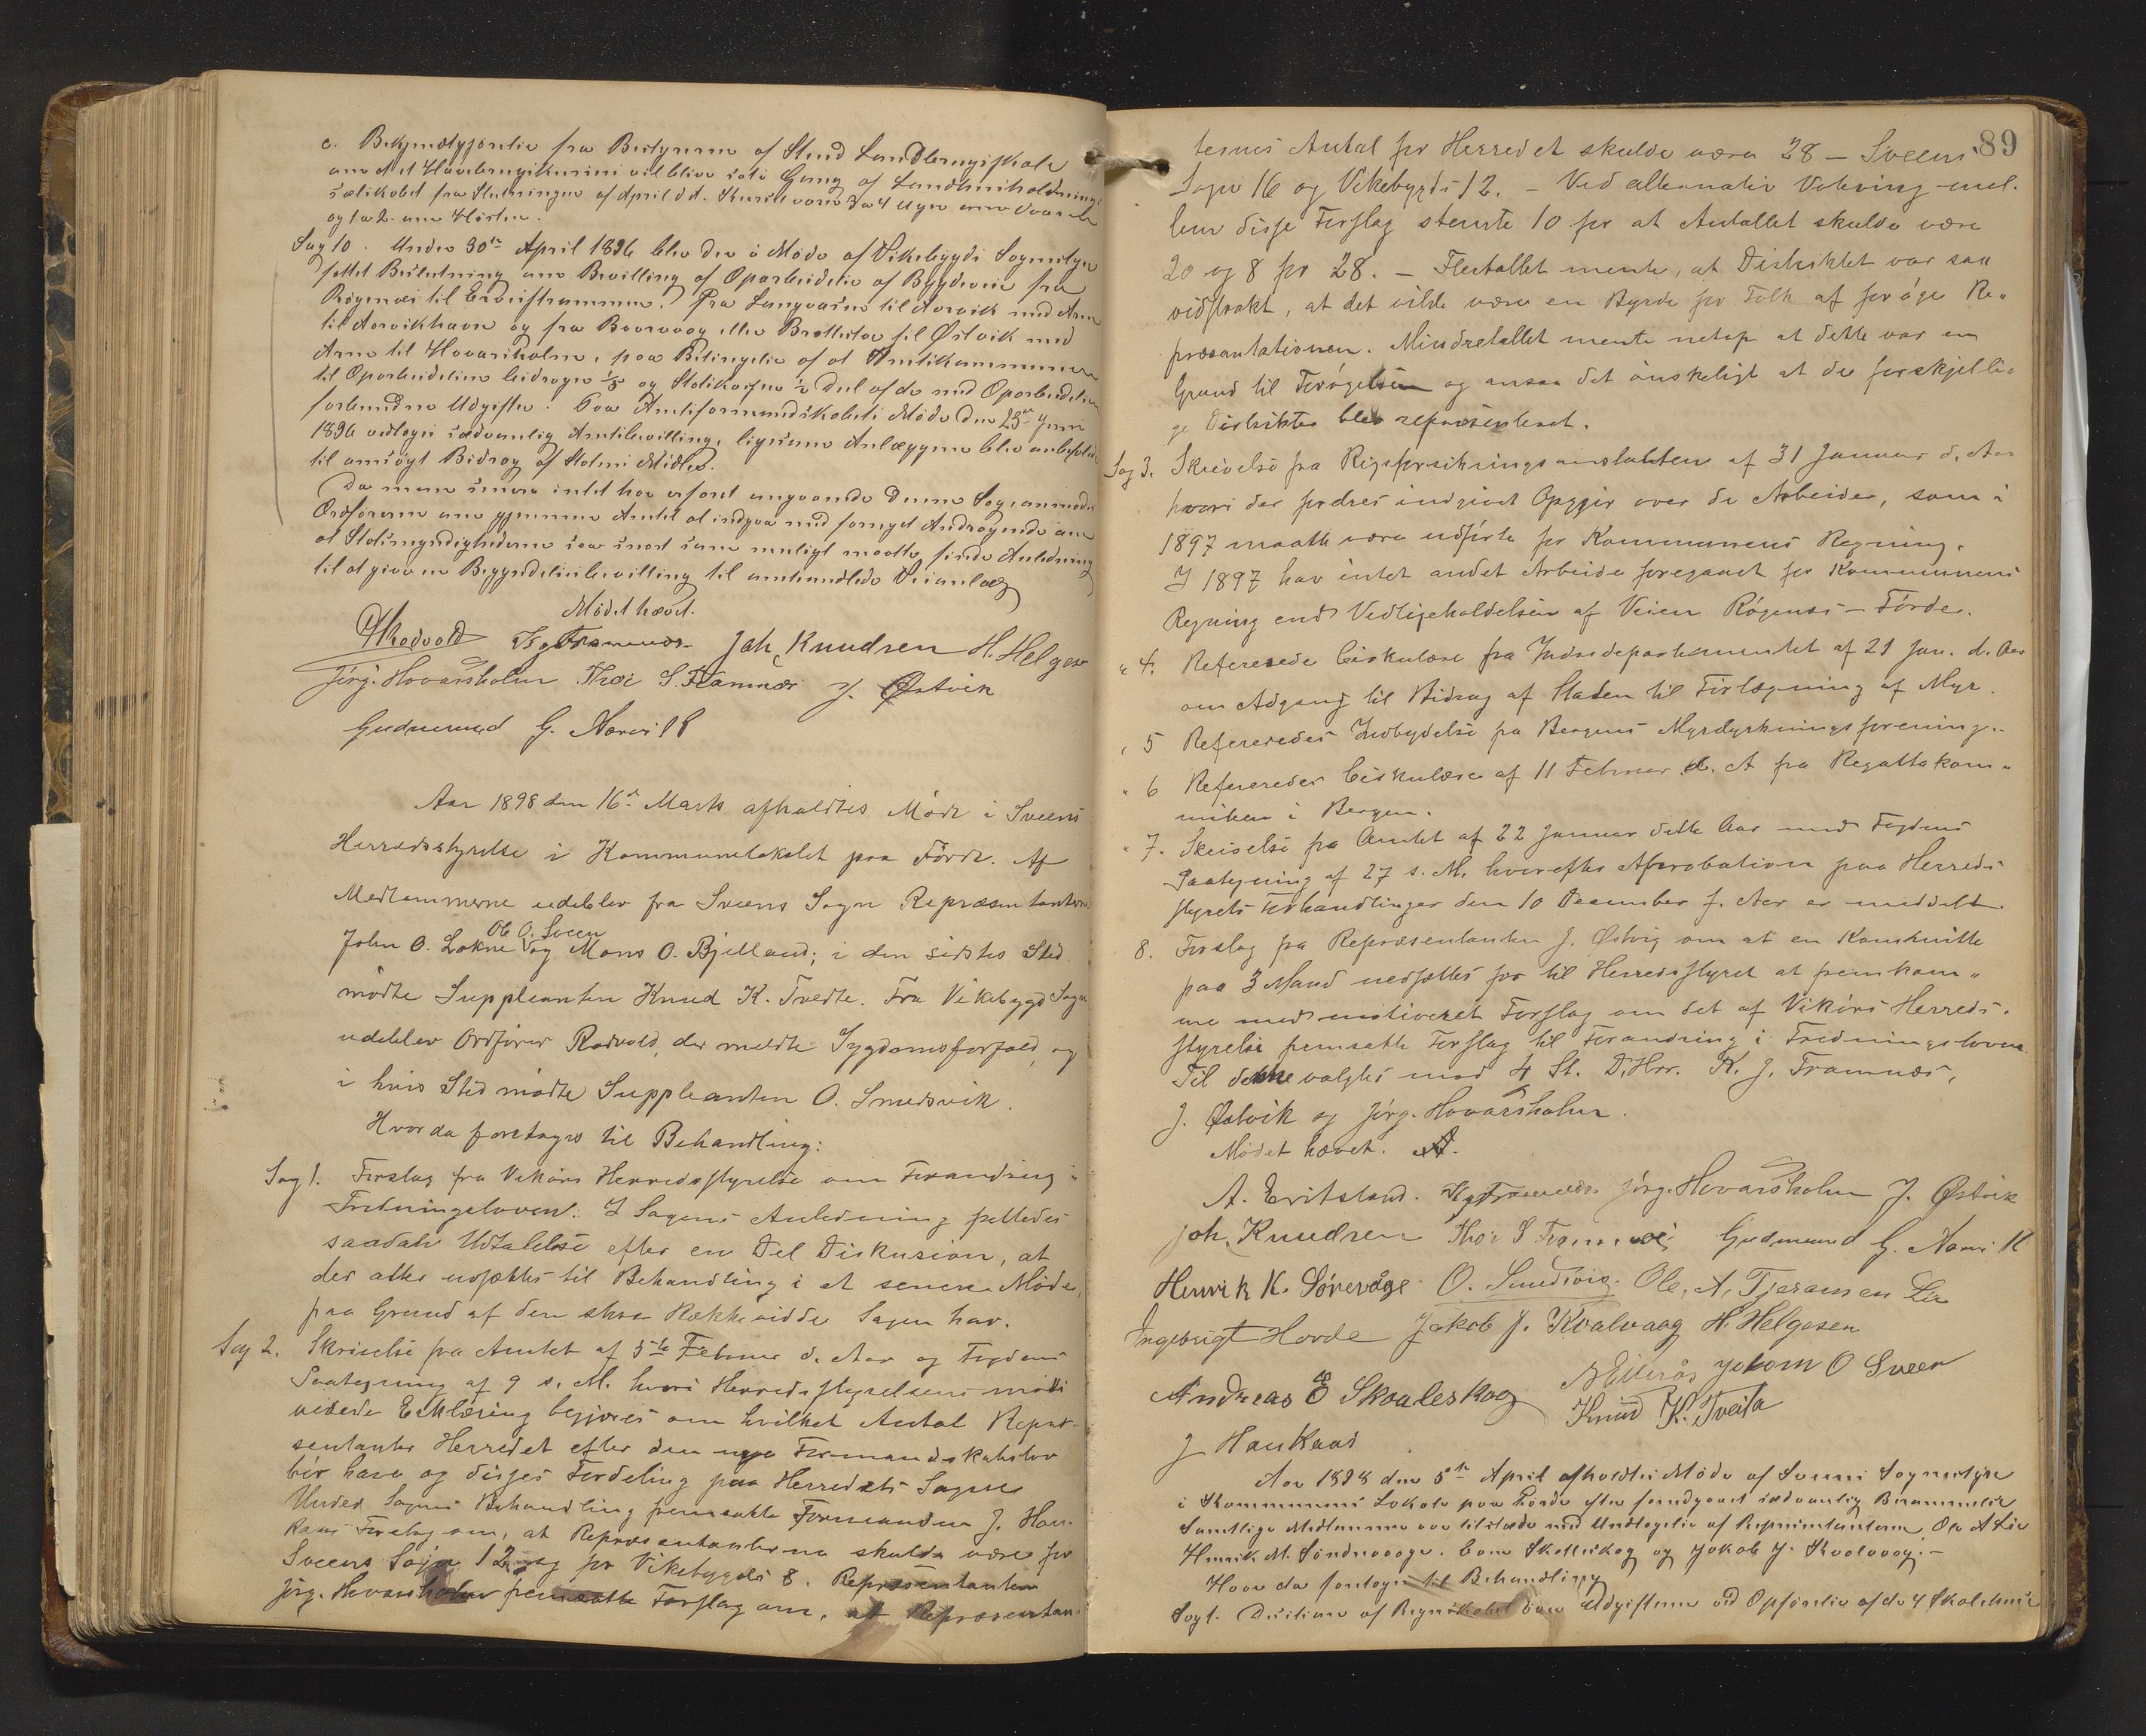 c. Bekjendtgjørelse fra Bestyreren af Stend Landbrugsskole
om at Havebrugskursus vil blive sat i Gang af Landhusholdnings-
selskabet fra Slutningen af April d. A. Kurset varer 3 a 4 Uger om Vaaren
og 1 a 2 om Høsten.
Sag 10. Under 30te April 1896 blev der i Møde af Vikebygds Sognestyre
fattet Beslutning om Bevilling af Oparbeidelse af Bygdeveie fra
Røgenæs til Grændsen. Fra Langvasen til Aarvik med Arm
til Aarvikhavn og fra Buarvaag eller Brattestø til Østvik med
Arm til Hovarsholm, paa Betingelse af at Amtskommunen
til Oparbeidelsen bidrager 1/5 og Statskassen 1/2 Del af de med Oparbeidelsen
forbundne Udgifter. Paa Amtsformandskabets Møde den 23de Juni
1896 vedtoges sædvanlig Amtsbevilling, ligesom Anlæggene blev anbefalet
til ansøgt Bidrag af Statens Midler.
Da man senere intet har erfaret angaaende denne Sag, anmodes
Ordføreren om gjennem Amtet at indgaa med fornyet Andragende om
at Statsmyndighederne saa snart som muligt maatte finde Anledning
til at give en Begyndelsesbevilling til omhandlede Veianlæg
Mødet hævet.
Rodvold K. J. Framnæs Joh. Knudsen H. Helgesen
Jørg. Hovarsholm Thor S. Framnæs J. Østvik
Gudmund G. Nævik
Aar 1898 den 16de Marts afholdtes Møde i Sveens
Herredsstyrelse i Kommunelokalet paa Førde. Af
Medlemmerne udeblev fra Sveens Sogn Repræsentanterne
Ole O. Sveen
John O. Løkne og Mons O. Bjelland; i den sidstes Sted
mødte Suppleanten Knud K. Tvedte. Fra Vikebygd Sogn
udeblev Ordfører Rodvold, der meldte Sygdomsforfald, og
i hvis Sted mødte Suppleanten O. Smedsvik.
Hvorda foretoges til Behandling:
Sag 1. Forslag fra Vikørs Herredsstyrelse om Forandring i
Fredningsloven: I Sagens Anledning fattedes
saadan Udtalelse efter en Del Diskusion, at
der atter udsættes til Behandling i et senere Møde,
paa Grund af den store Rækkevidde Sagen har.
Sag 2. Skrivelse fra Amtet af 5te Februar d. Aar og Fogdens
Paategning af 9 s. M. hvori Herredsstyrelsens moti
verede Erklæring begjæres om hvilket Antal Repræ-
sentanter Herredet efter den nye Formandskabslov
bør have og disses Fordeling paa Herredets Sogne
Under Sagens Behandling fremsatte Formanden J. Hau-
kaas Forslag om, at Repræsentanterne skulde være for
Sveens Sogn 12 og for Vikebygds 8. Repræsentanten
Jørg. Hovarsholm fremsatte Forslag om, at Repræsentan-
89
ternes Antal for Herredet skulde være 28 – Sveens
Sogn 16 og Vikebygds 12. – Ved alternativ Votering mel-
lem disse Forslag stemte 10 for at Antallet skulde være
20 og 8 for 28. – Flertallet mente, at Distriktet var saa
vidstrakt, at det vilde være en Byrde for Folk at forøge Re-
præsentationen. Mindretallet mente netop at dette var en
Grund til Forøgelsen og ansaa det ønskeligt at de forskjelli-
ge Distrikter blev repræsenteret.
Sag 3. Skrivelse fra Rigsforsikringsanstalten af 31 Januar d. Aar
hvori der fordres indgivet Opgjør over de Arbeider, som i
1897 maatte være udførte for Kommunens Regning.
I 1897 har intet andet Arbeide foregaaet for Kommunens
Regning end Vedligeholdelsen af Veien Røgenæs – Førde.
" 4. Refererede Cirkulære fra Indredepartementet af 21 Jan. d. Aar
om Adgang til Bidrag af Staten til Tørlægning af Myr.
" 5 Refereredes Indbydelse fra Bergens Myrdyrkningsforening.
" 6 Refereredes Cirkulære af 11 Februar d. A fra Regattakom-
miteen i Bergen.
" 7. Skrivelse fra Amtet af 22 Januar dette Aar med Fogdens
Paategning af 27 s. M. hvorefter Approbation paa Herreds-
styrets Forhandlinger den 10 Desember f. Aar er meddelt.
8. Forslag fra Repræsentanten J. Østvig om at en Komitte
paa 3 Mand nedsættes for til Herredsstyret at fremkom-
me med motiveret Forslag om det af Vikørs Herreds-
styrelse fremsatte Forslag til Forandring i Fredningsloven.
Til denne valgtes med 4 St. D'Hrr. K. J. Framnæs,
J. Østvik og Jørg. Hovarsholm.
Mødet hævet.
A. Eritsland. K. J. Framnæs. Jørg. Hovarsholm J. Østvik
Joh. Knudsen Thor S Framnæs Gudmund G. Nævik
Henrik K. Sørevåge O. Smedsvig. Ole. A. Tjeransen Lie
Ingebrigt Hovde Jakob J. Kvalvaag H. Helgesen
Andreas E Skoaleskog Johan O Sveen
Knud K. Tveita
J Haukaas
Aar 1898 den 5te April afholdtes Møde af Sveens Sognestyre
i Kommunens Lokale paa Førde efter forudgaaet sædvanlig Berammelse
Samtlige Medlemmer var tilstede med Undtagelse af Repræsentanterne Ole A Lie
Henrik M. Søndrevaage. Skolleskog og Jakob J. Kvalvaag. –
Hvorda foretoges til Behandling
Sag 1. Decision af Regnskabet over Udgifterne ved Opførelse af de 4 Skolehuse